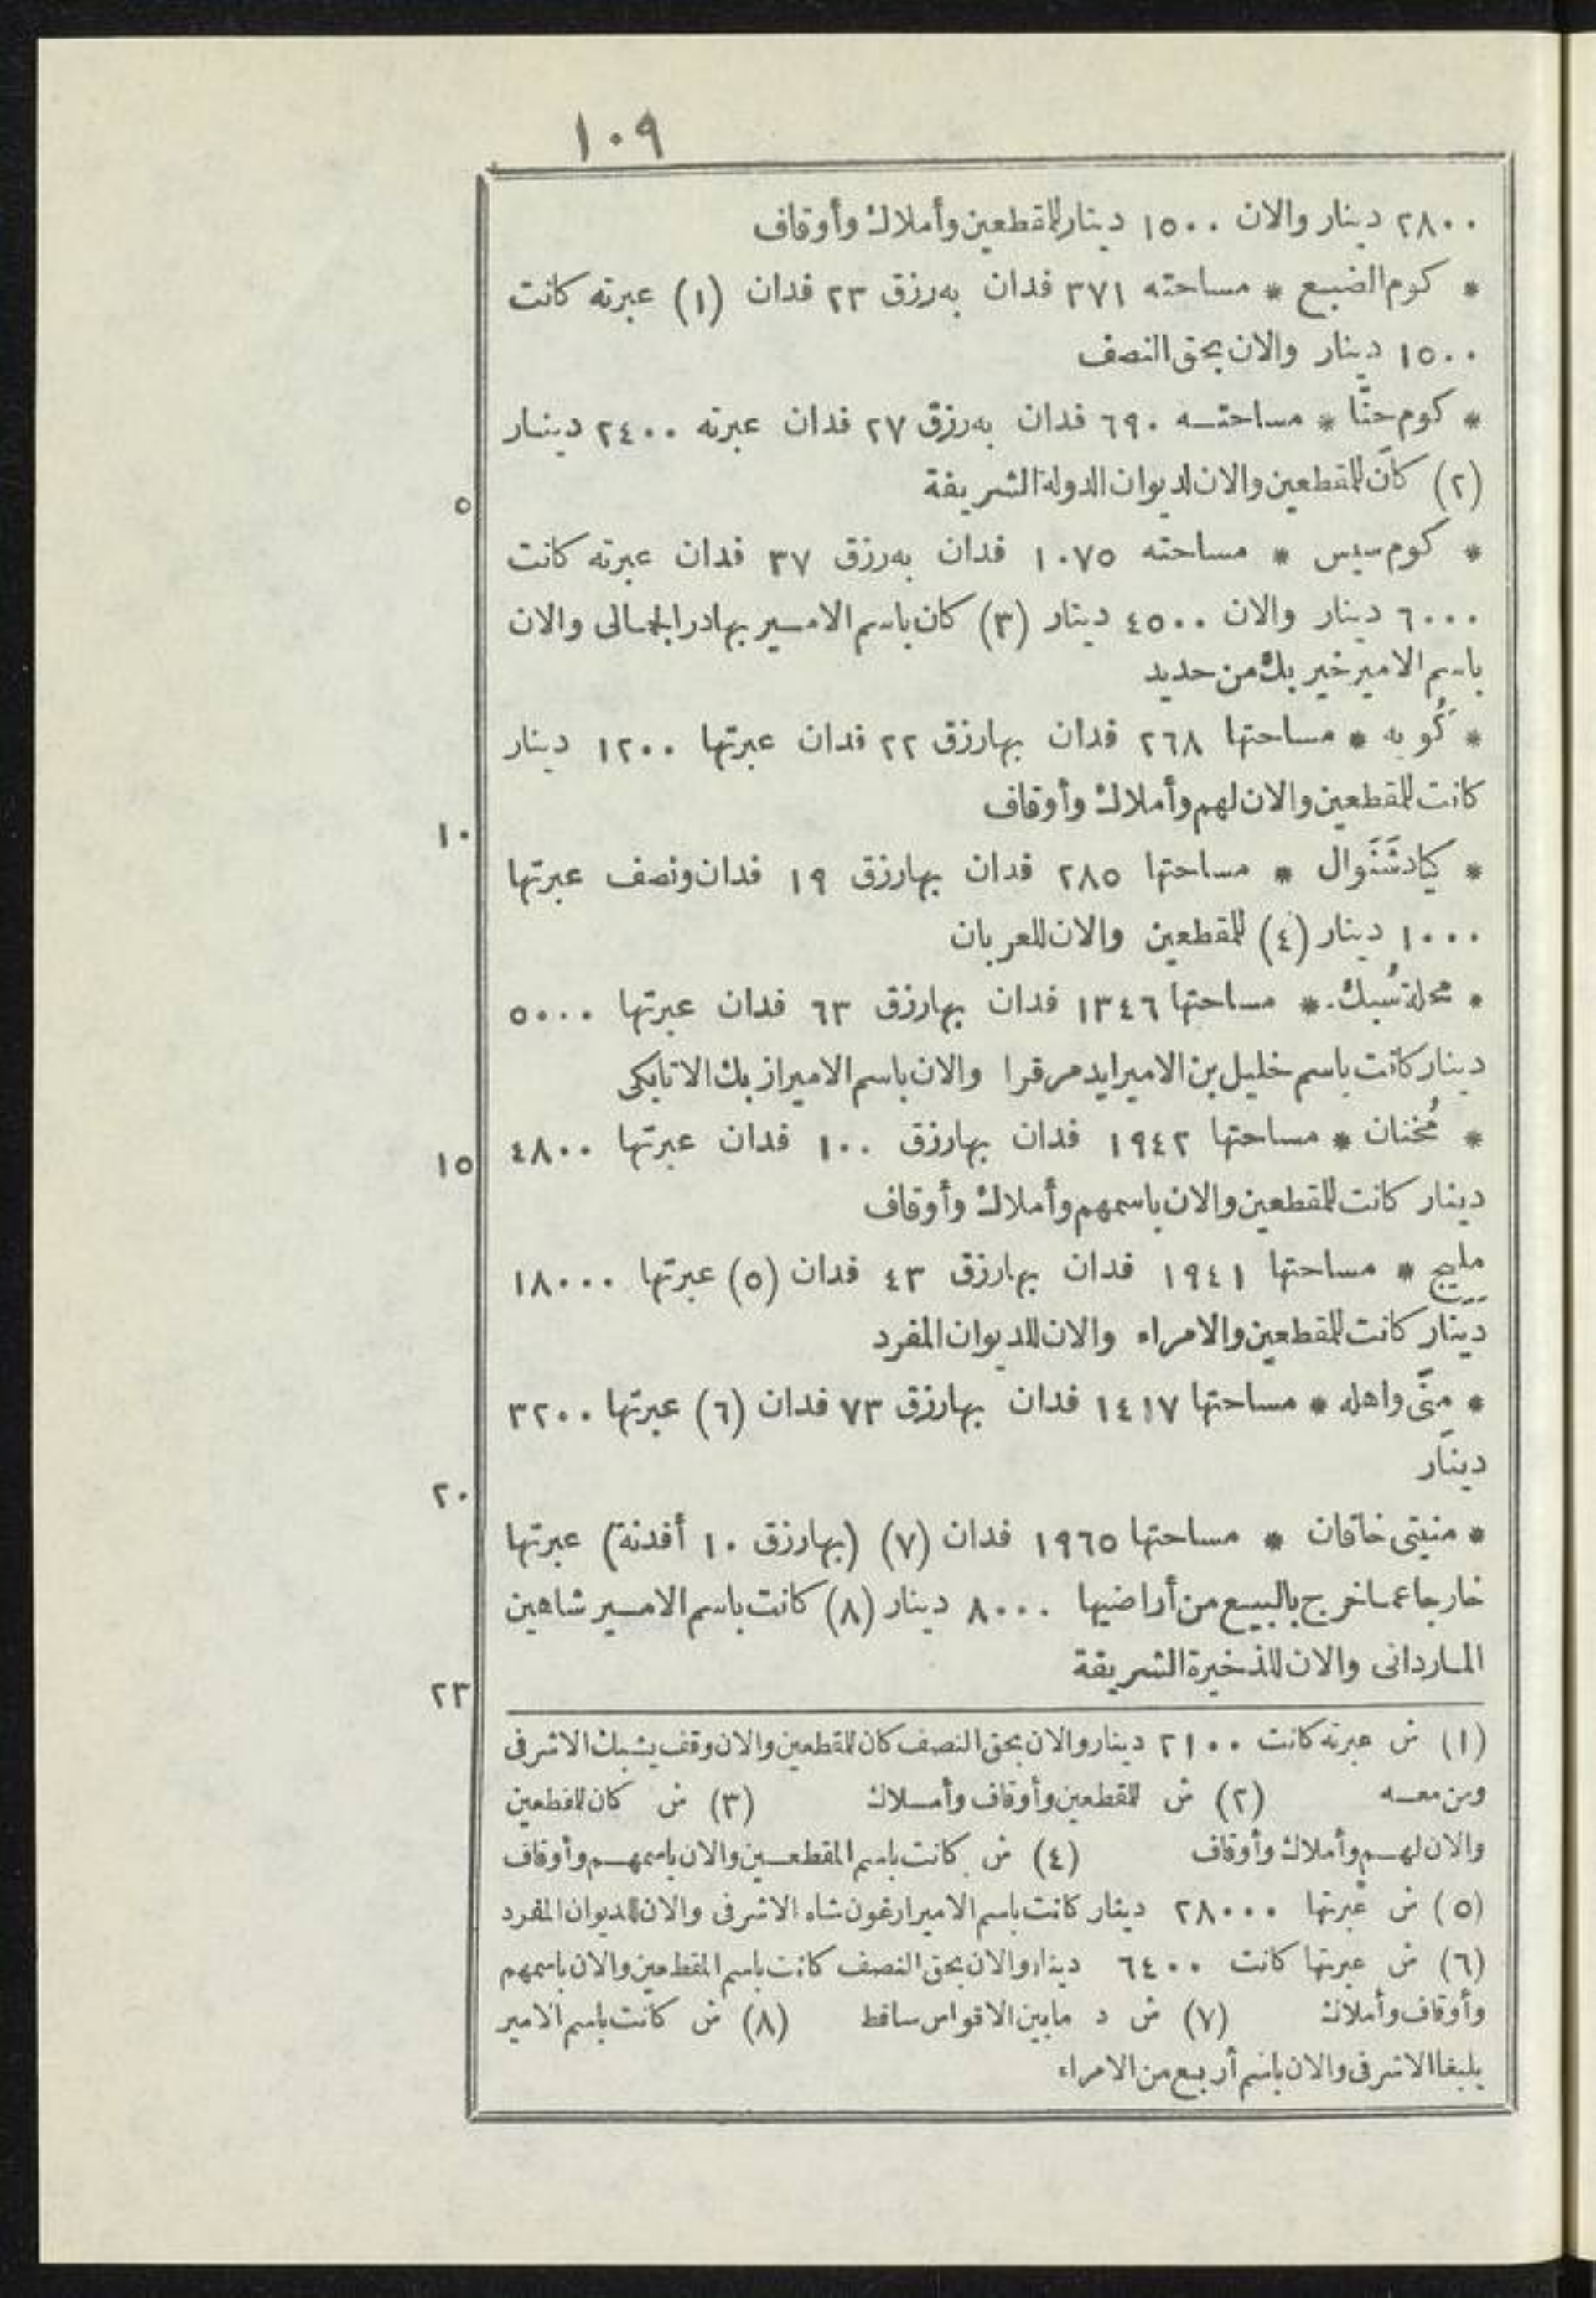 ١٠٩
٢٨٠٠ دينار والان ١٥٠٠ دينار للمقطعين وأملاك وأوقاف
* كوم الضبع * مساحته ٣٧١ فدان به رزق ٢٣ فدان (١) عبرته كانت
١٥٠٠ دينار والان بحق النصف
* كوم حنّا * مساحته ٦٩٠ فدان به رزق ٢٧ فدان عبرته ٢٤٠٠ دينار
(٢) كان للمقطعين والان لديوان الدولة الشريفة
٥
* كوم سيس * مساحته ١٠٧٥ فدان به رزق ٣٧ فدان عبرته كانت
٦٠٠٠ دينار والان ٤٥٠٠ دينار (٣) كان باسم الامير بهادر الجمالى والان
باسم الامير خير بك من حديد
* كُويه * مساحتها ٢٦٨ فدان بها رزق ٢٢ فدان عبرتها ١٢٠٠ دينار
كانت للمقطعين والان لهم وأملاك وأوقاف
١٠
* كيادشَنَوال * مساحتها ٢٨٥ فدان بها رزق ١٩ فدان ونصف عبرتها
١٠٠٠ دينار (٤) للمقطعين والان للعربان
* محلة سُبك * مساحتها ١٣٤٦ فدان بها رزق ٦٣ فدان عبرتها ٥٠٠٠
دينار كانت باسم خليل بن الامير ايدمر قرا والان باسم الامير ازبك الاتابكى
* مُخنان * مساحتها ١٩٤٢ فدان بها رزق ١٠٠ فدان عبرتها ٤٨٠٠
١٥
دينار كانت للمقطعين والان باسمهم وأملاك وأوقاف
مليج * مساحتها ١٩٤١ فدان بها رزق ٤٣ فدان (٥) عبرتها ١٨٠٠٠
دينار كانت للمقطعين والامراء والان للديوان المفرد
* منّى واهله * مساحتها ١٤١٧ فدان بها رزق ٧٣ فدان (٦) عبرتها ٣٢٠٠
دينار
٢٠
* منيتى خاقان * مساحتها ١٩٦٥ فدان (٧) (بها رزق ١٠ أفدنة) عبرتها
خارجا عما خرج بالبيع من أراضيها ٨٠٠٠ دينار (٨) كانت باسم الامير شاهين
الماردانى والان للذخيرة الشريفة
٢٣
(١) ش عبرته كانت ٢١٠٠ دينار والان بحق النصف كان للمقطعين والان وقف يشبك الاشرفى
ومن معه (٢) ش للمقطعين وأوقاف وأملاك (٣) ش كان للمقطعين
والان لهم وأملاك وأوقاف (٤) ش كانت باسم المقطعين والان باسمهم وأوقاف
(٥) ش عبرتها ٢٨٠٠٠ دينار كانت باسم الامير ارغون شاه الاشرفى والان للديوان المفرد
(٦) ش عبرتها كانت ٦٤٠٠ دينار والان بحق النصف كانت باسم المقطعين والان باسمهم
وأوقاف وأملاك (٧) ش د مابين الاقواس ساقط (٨) ش كانت باسم الامير
يلبغا الاشرفى والان باسم أربع من الامراء